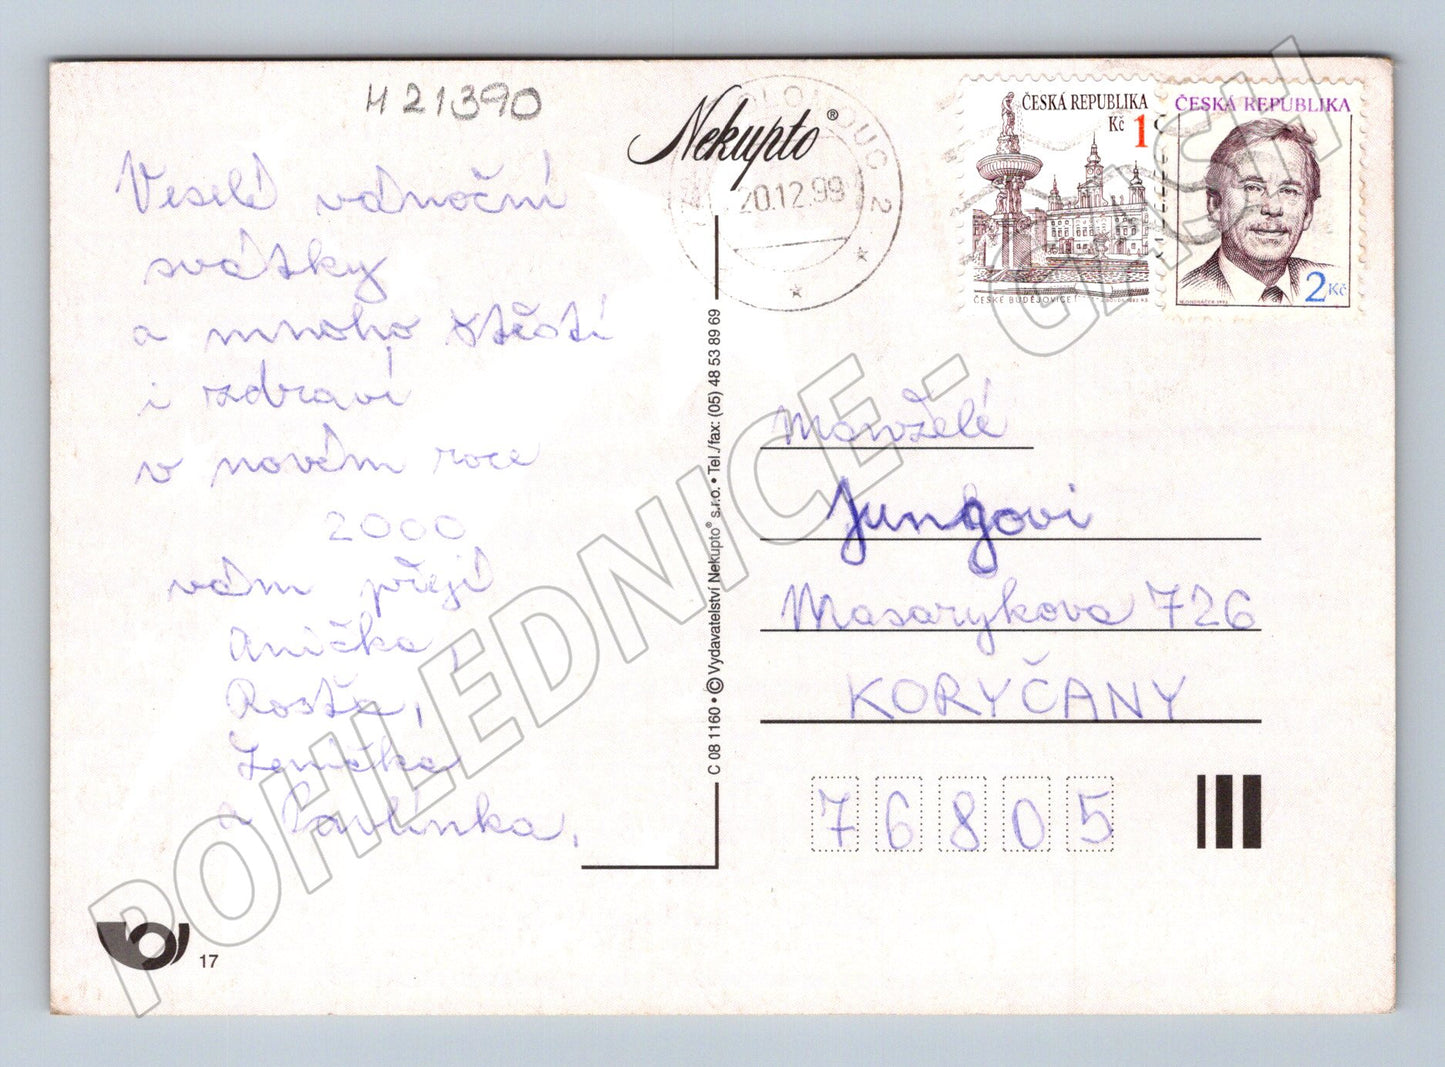 H 21390
Veselé vánoční
svátky
a mnoho štěstí
i zdraví
v novém roce
2000
vám přejí
Anička,
Rosťa,
Lenička
a Pavlínka.
17
Nekupto®
OLOMOUC 2
20.12.99
ČESKÁ REPUBLIKA
Kč 1
ČESKÉ BUDĚJOVICE
ČESKÁ REPUBLIKA
2 Kč
C 08 1160 • © Vydavatelství Nekupto® s.r.o. • Tel./fax: (05) 48 53 89 69
Manželé
Jungovi
Masarykova 726
KORYČANY
76805
POHLEDNICE - GASH